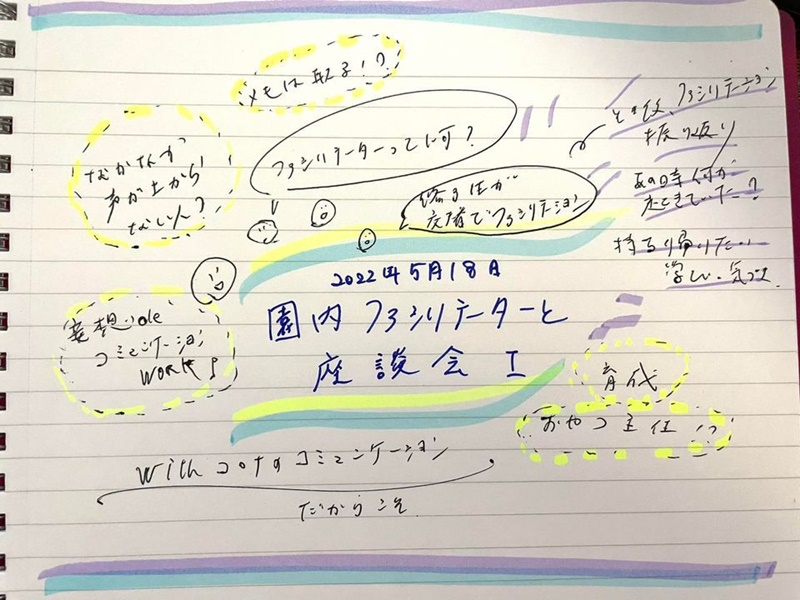 メモは取る!?
なかなか
声が上がら
ない人?
ファシリテーターって何?
ファシリテーション
振り返り
あの時何が
起きていた?
持ち帰りたい
学び、気づき
全員が
交替でファシリテーション
2022年5月18日
園内ファシリテーターと
座談会 I
妄想
コミュニケーション
WORK!
育成
主任!?
Withコロナのコミュニケーション
だからこそ